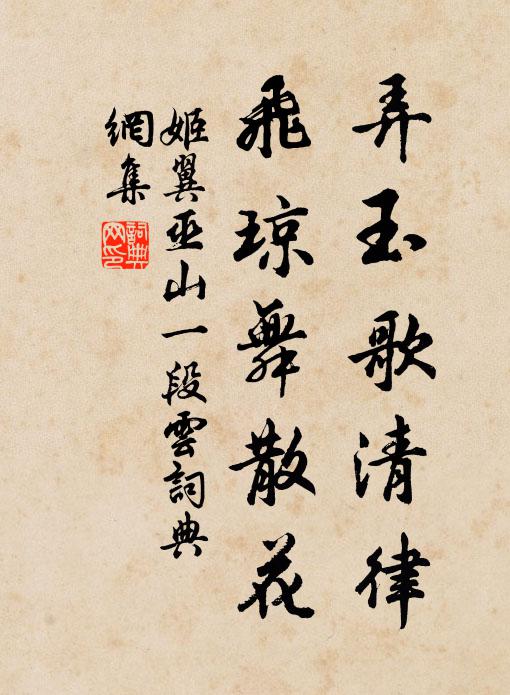 弄玉歌清律
飛瓊舞散花
姬翼巫山一段雲詞典
網集
詞典網印